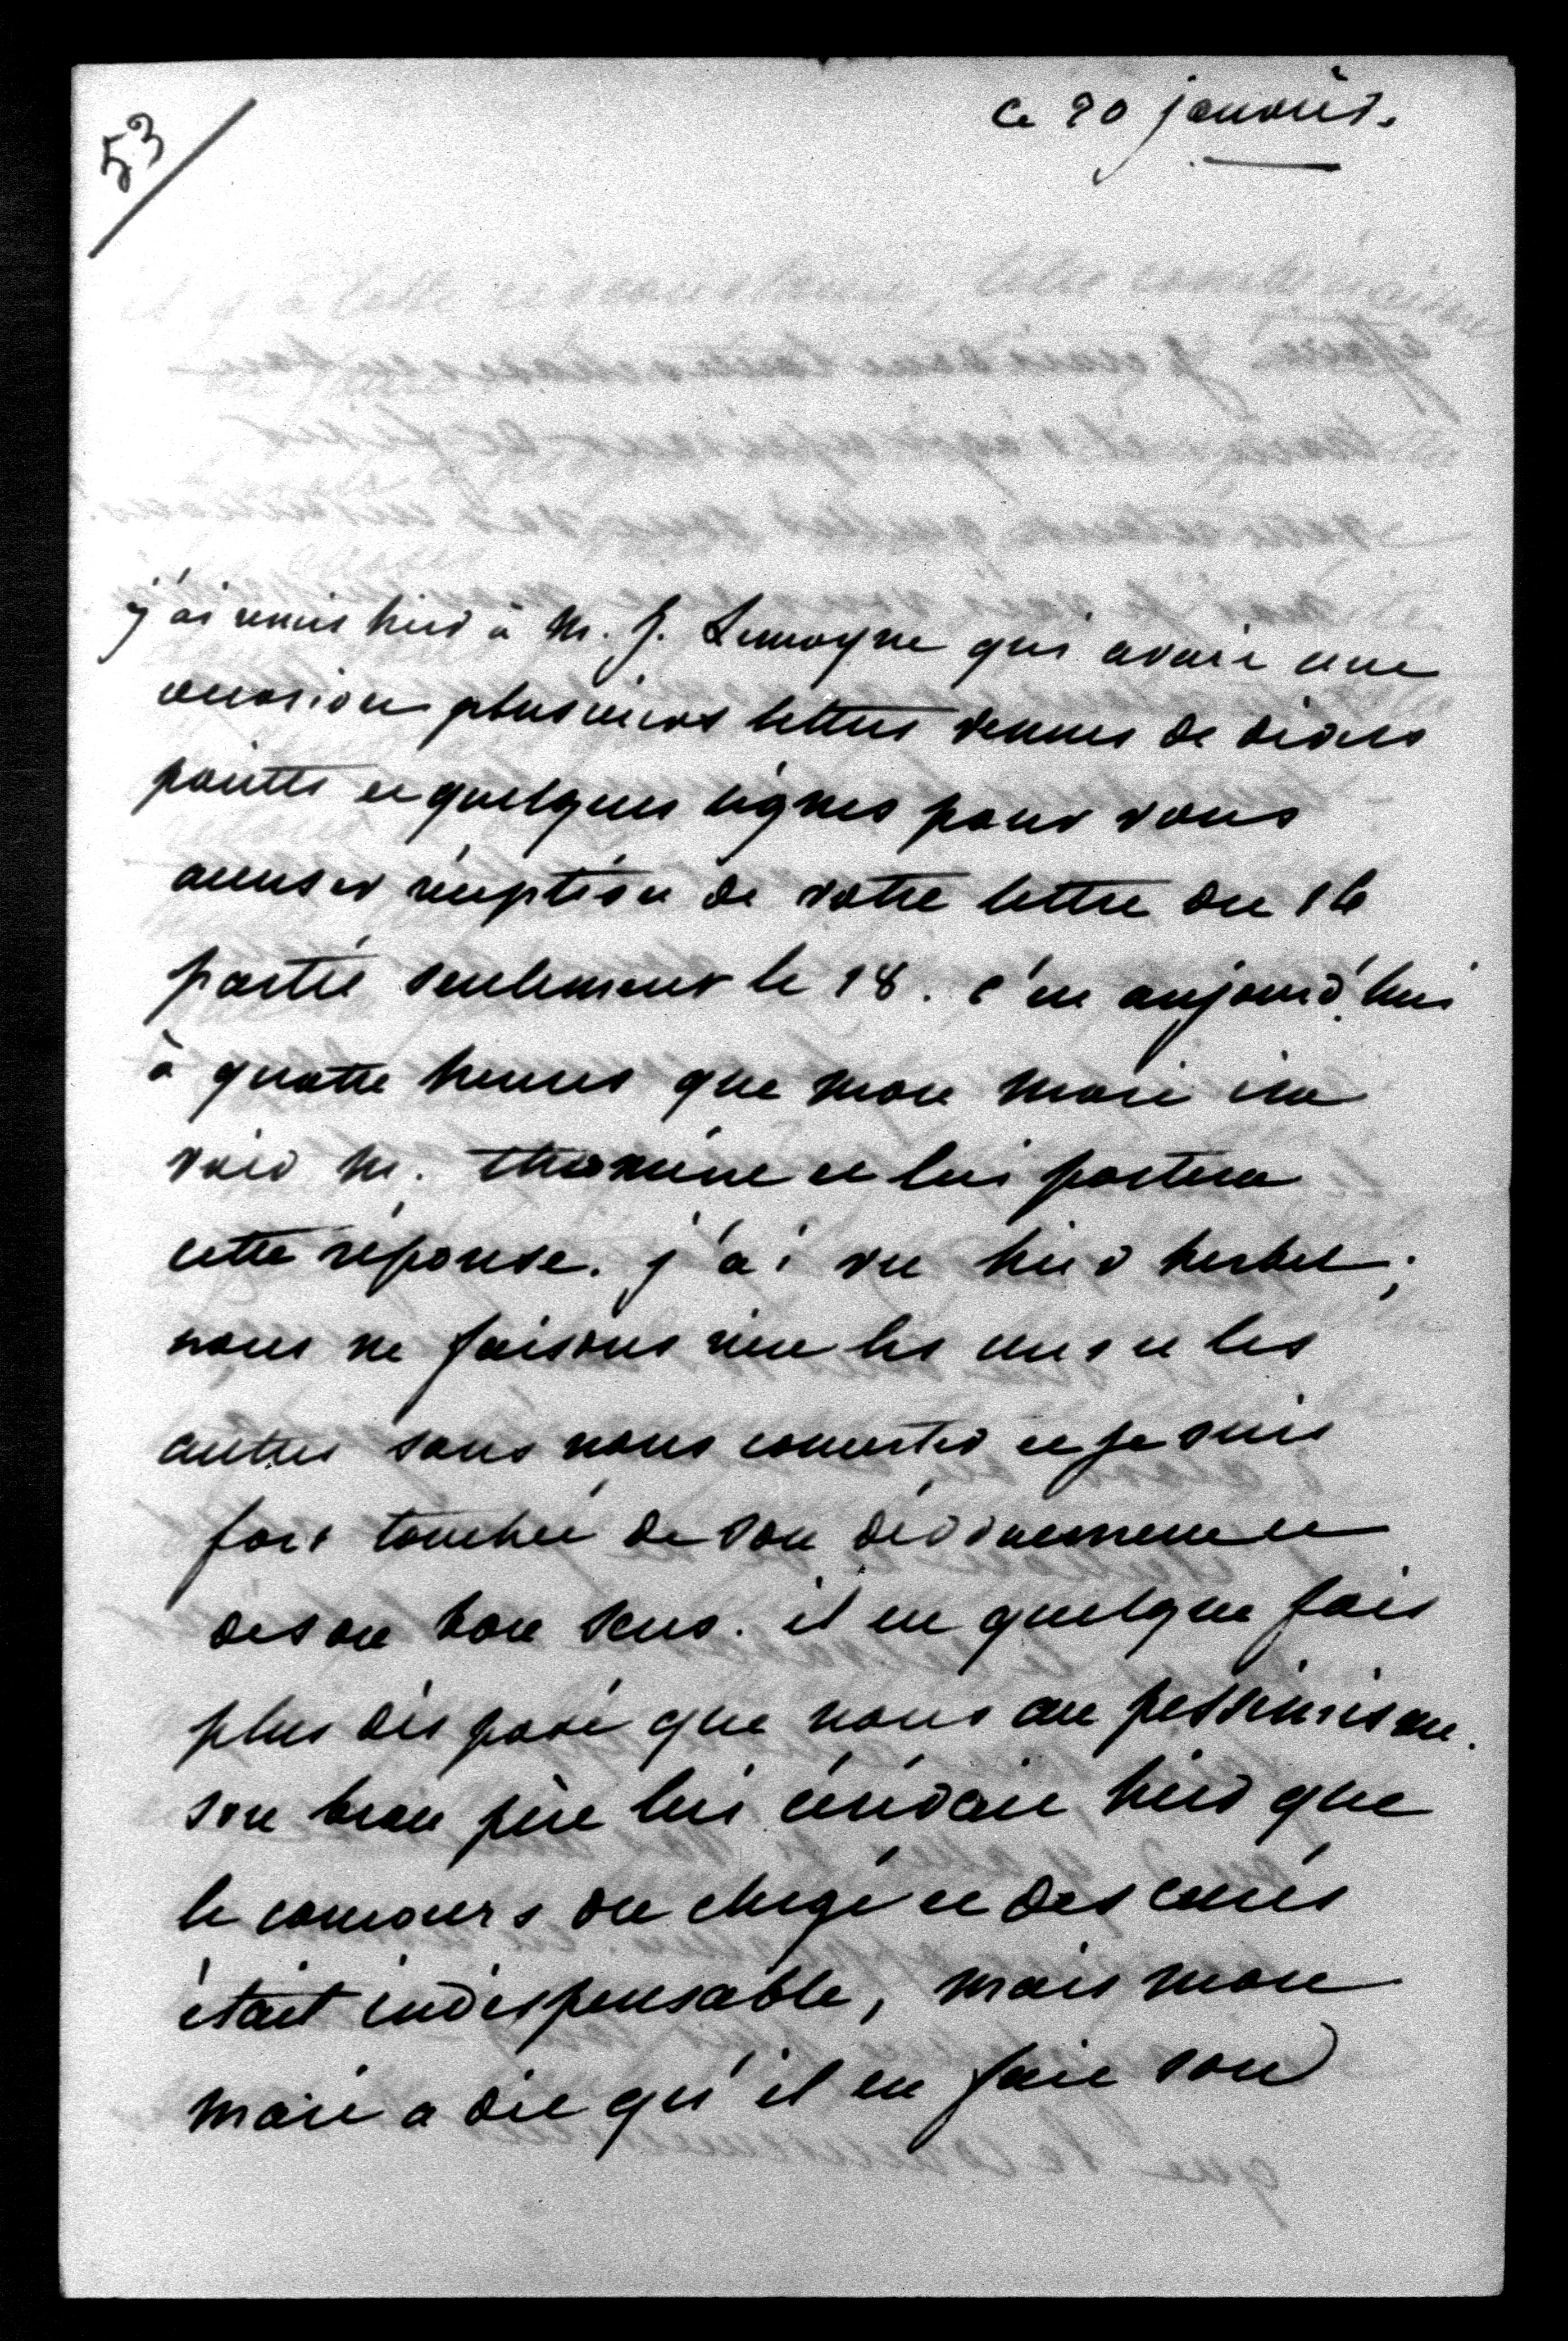 53
ce 20 janvier.
j'ai remis hier à M. J. Lemoyne qui avait une
occasion plusieurs lettres venues de divers
points et quelques lignes pour vous
accuser réception de votre lettre du 16
partie seulement le 18. c'est aujourd'hui
à quatre heures que mon mari ira
voir M. thomine et lui portera
cette réponse. j'ai vu hier herbet;
nous ne faisons rien les uns et les
autres sans nous concerter et je suis
fort touchée de son dévouement et
de son bon sens. il est quelque fois
plus disposé que nous au pessimisme.
son beau père lui écrivait hier que
le concours du clergé et des curés
était indispensable, mais mon
mari a dit qu'il en fait son